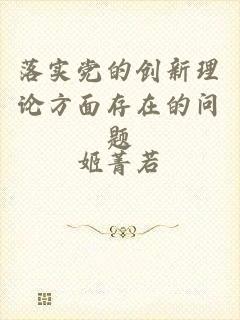 落实党的创新理
论方面存在的问
题
姬菁若